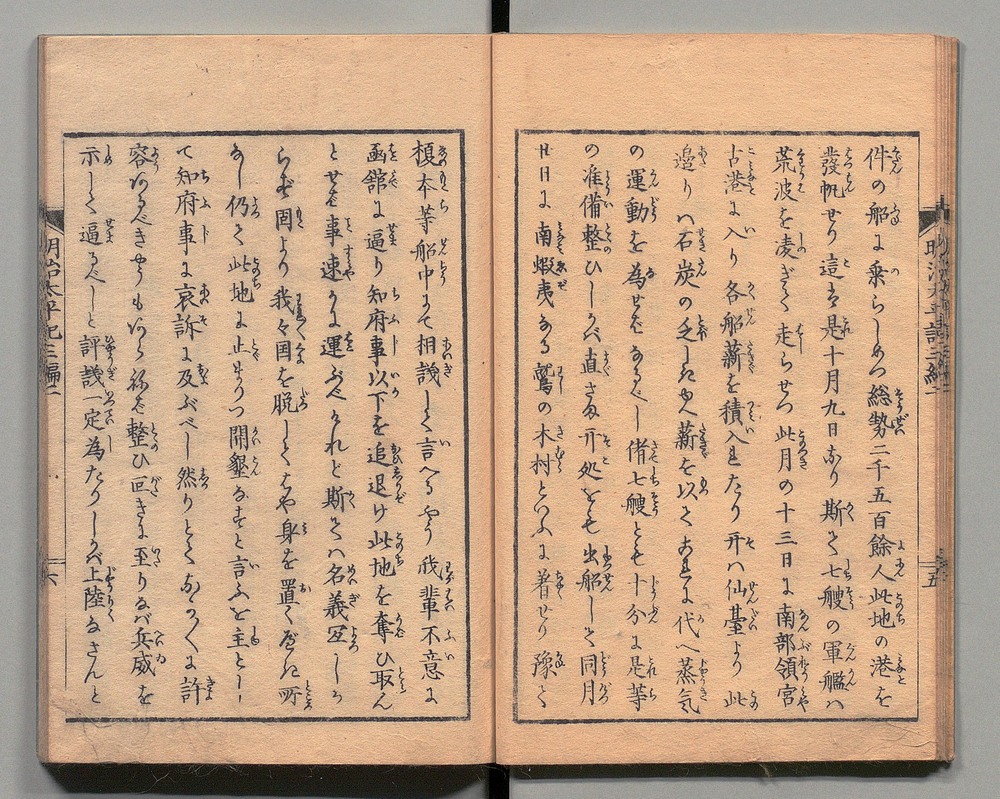 件の船に乗らしめつ総勢二千五百餘人此地の港を
發帆せり這は是十月九日なり斯て七艘の軍艦ハ
荒波を凌ぎて走らせつ此月の十三日に南部領宮
古港に入り各船薪を積入たり开ハ仙臺より此
邊りハ石炭の乏しき故薪を以てこれに代へ蒸気
の運動を為せるなるべし偖七艘とも十分に是等
の准備整ひしかバ直さま开処をも出船して同月
廿日に南蝦夷なる鷲の木村といふに着せり豫て
明治太平記三編二
五
榎本等船中にて相議して言へるやう我輩不意に
函館に逼り知府事以下を追退け此地を奪ひ取ん
とせば事速かに運ぶべけれど斯てハ名義正しか
らず固より我々国を脱してはや身を置べき所
なし仍て此地に止まりつ開墾なすと言ふを主とし
て知府事に哀訴に及ぶべし然りとてなかなかに許
容あるべきやうもあらねば整ひ回きに至りなバ兵威を
示して逼るべしと評議一定為たりしかバ上陸なさんと
明治太平記三編二
六